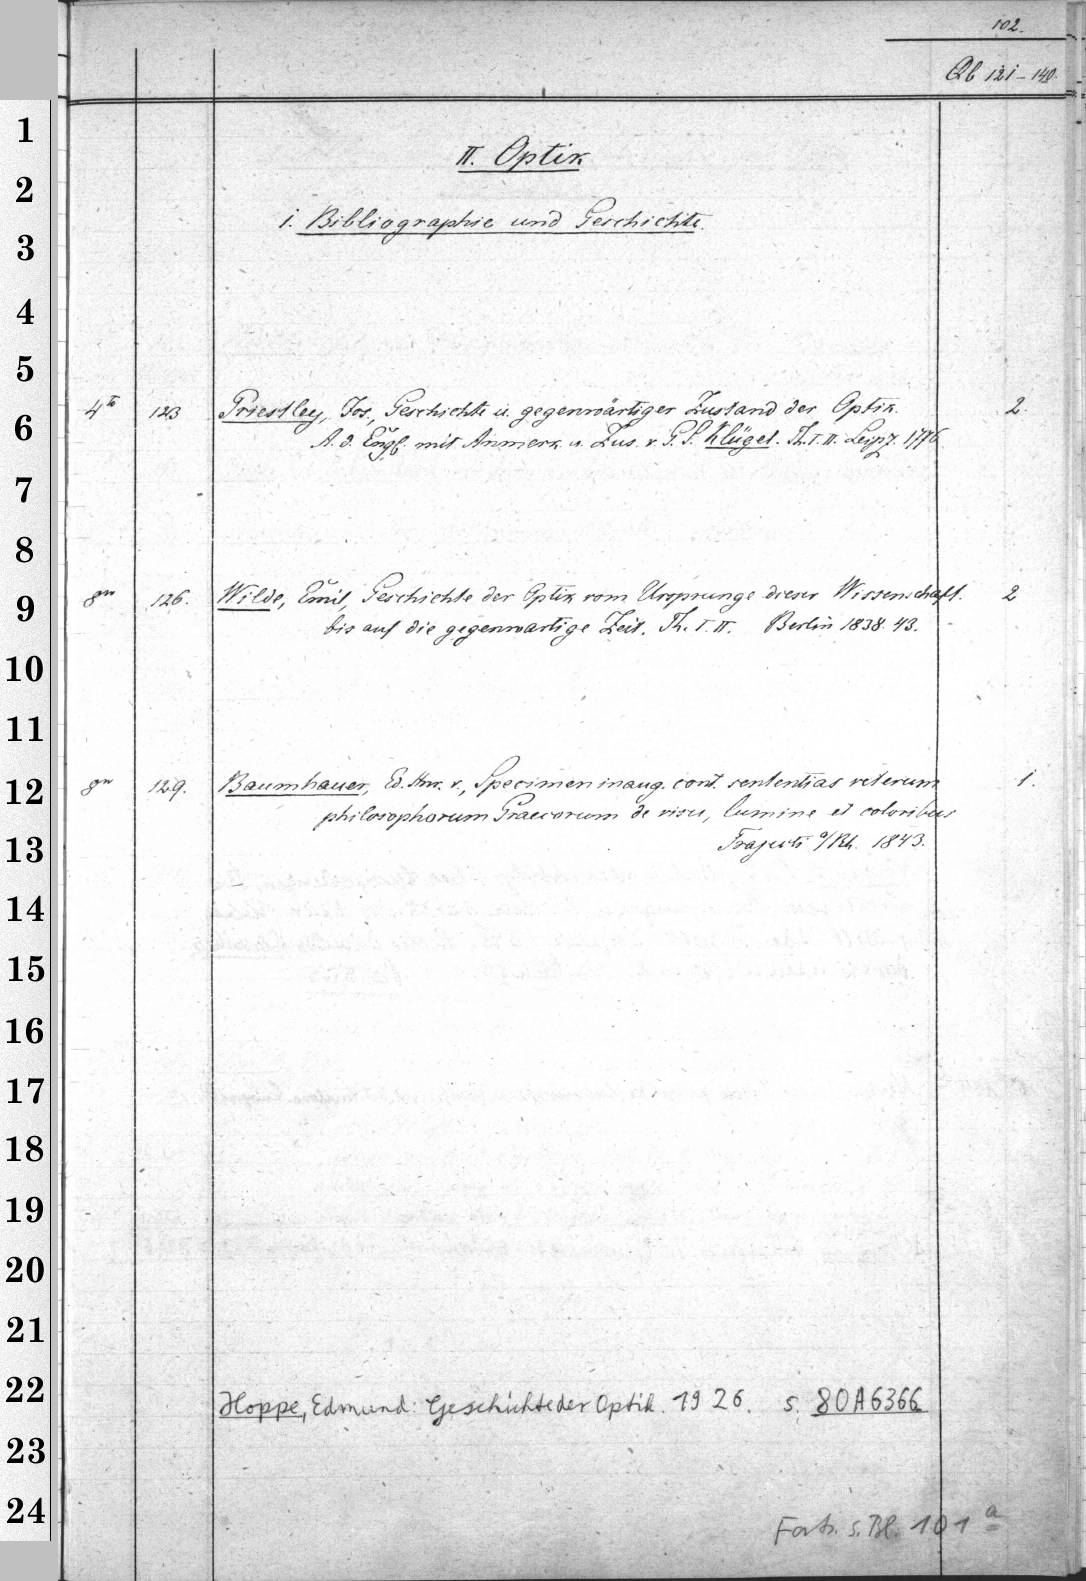 102.
Qb 121-140.
II. Optik
1. Bibliographie und Geschichte.
4to 123 Priestley, Jos., Geschichte u. gegenwärtiger Zustand der Optik. 2.
A. d. Engl. mit Anmerk. u. Zus. v. G. S. Klügel. Th. I. II. Leipz. 1776.
8vo 126. Wilde, Emil, Geschichte der Optik vom Ursprunge dieser Wissenschaft 2
bis auf die gegenwärtige Zeit. Th. I. II. Berlin 1838. 43.
8vo 129. Baumhauer, Ed. Hnr. v., Specimen inaug. cont. sententias veterum 1.
philosophorum Graecorum de visu, lumine et coloribus
Trajecti a/Rh. 1843.
Hoppe, Edmund: Geschichte der Optik. 1926. s. 80A6366
Forts. s. Bl. 101 a
1
2
3
4
5
6
7
8
9
10
11
12
13
14
15
16
17
18
19
20
21
22
23
24